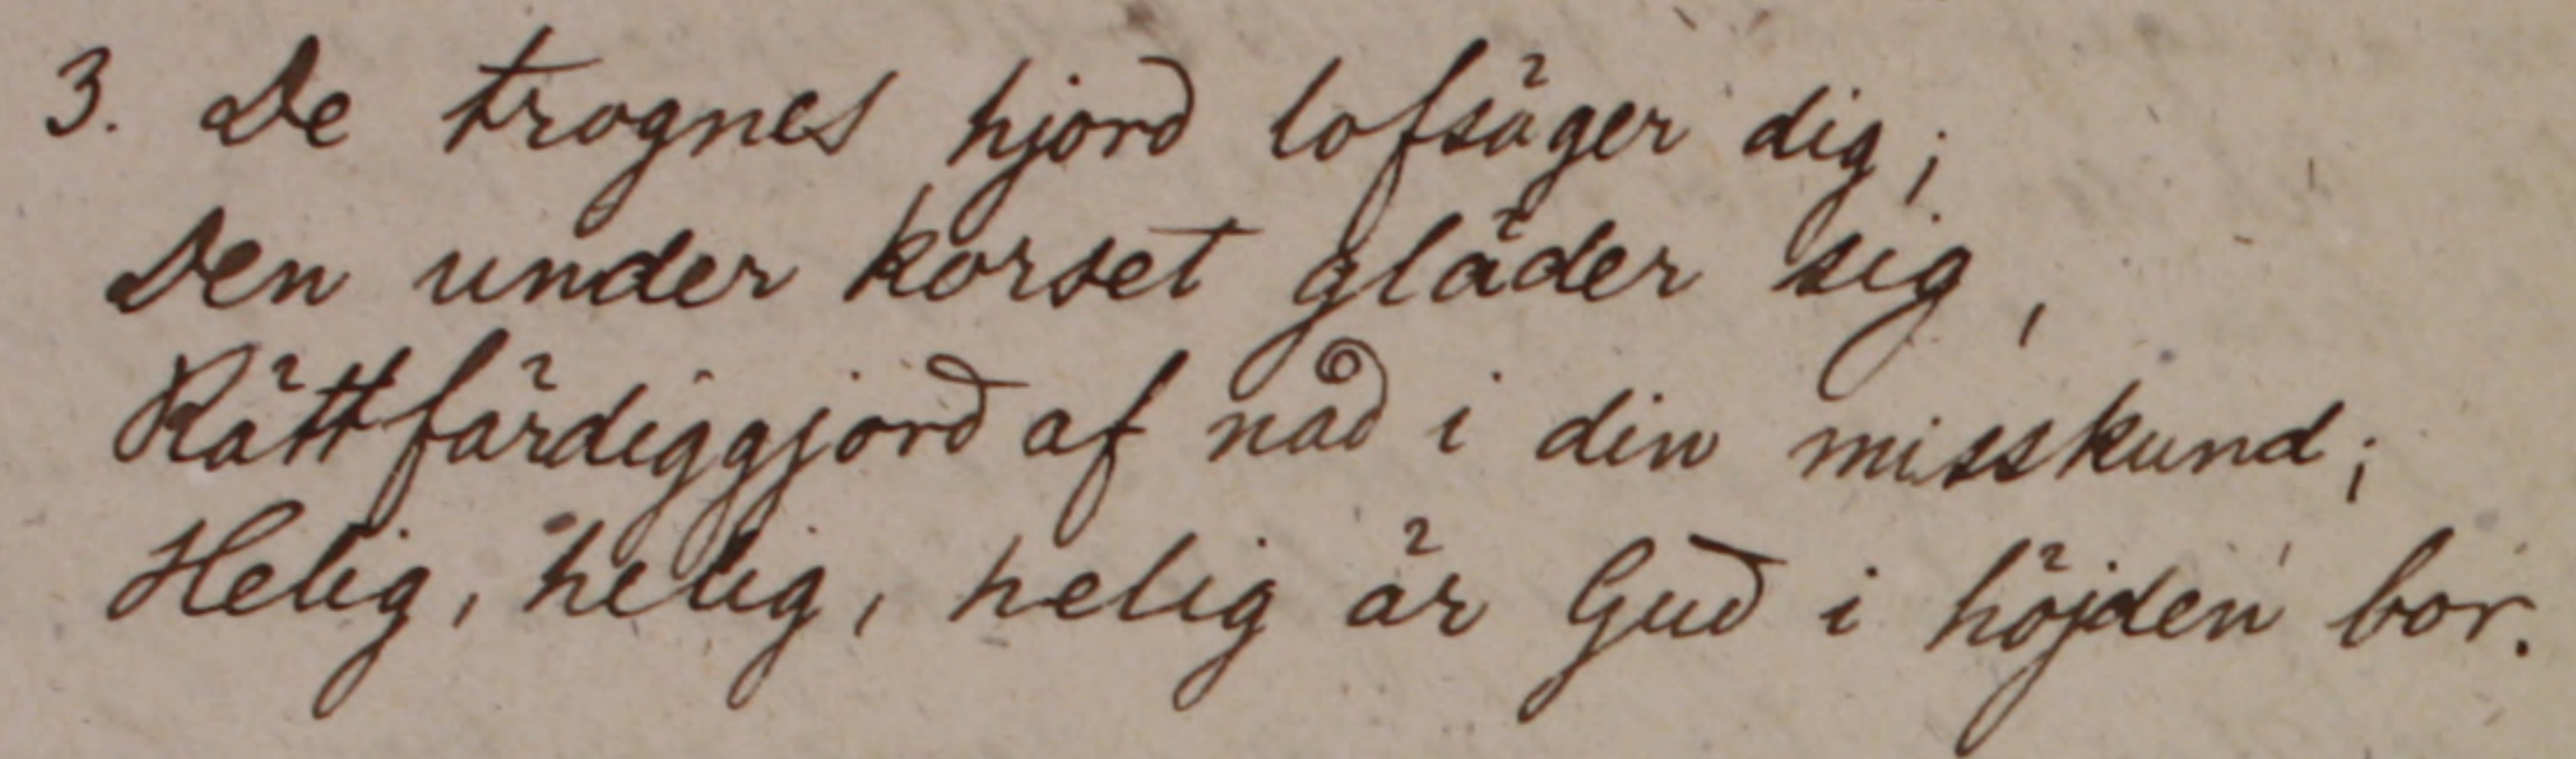 3. De trognes hjord lofsäger dig;
Den under korset gläder sig,
Rättfärdiggjord af nåd i din misskund;
Helig, helig, helig är Gud i höjden bor.